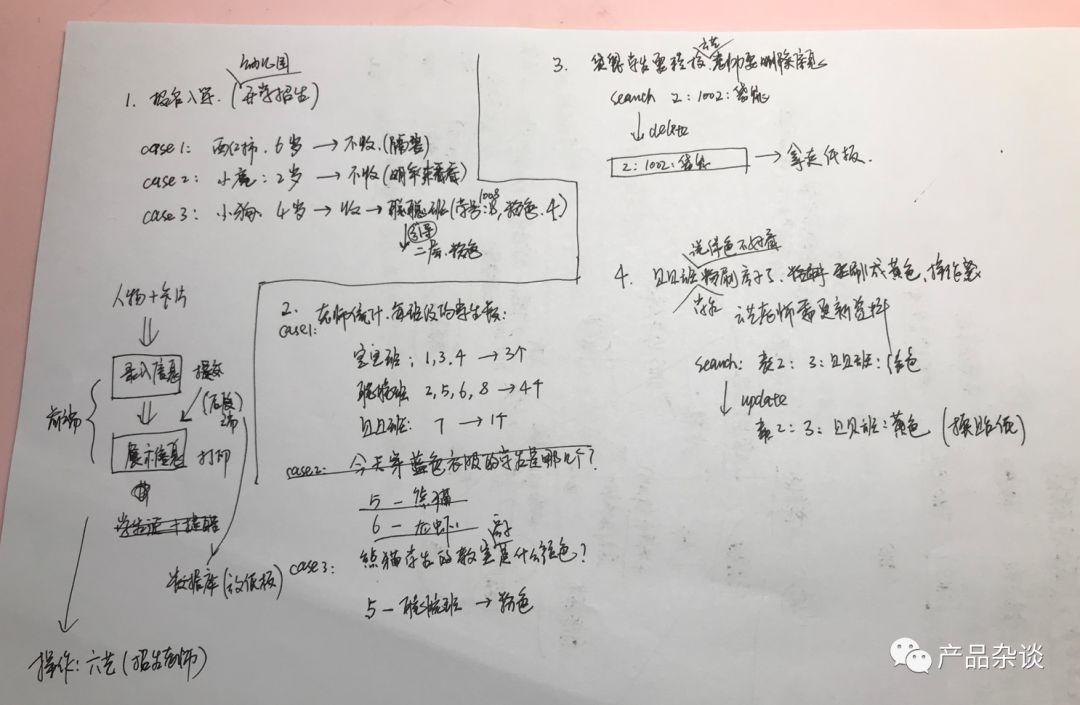 幼儿园
1. 报名入学. (开学招生)
case1: 西红柿. 6岁 → 不收. (隔壁)
case2: 小鹿: 2岁 → 不收 (明年来看看)
case3: 小狗: 4岁 → 收 → 聪聪班 (学号: 8, 粉色. 4)
1008
引导
二层. 粉色
人物+卡片
录入信息 提交
前端
(后段)
展示信息 打印
数据库 (放纸板)
操作: 六艺 (招生老师)
2. 老师统计. 每班级的学生数:
case1:
宝宝班: 1, 3, 4 → 3个
聪聪班 2, 5, 6, 8 → 4个
贝贝班: 7 → 1个
case2: 今天穿蓝色衣服的学生是哪几个?
5 - 熊猫
6 - 龙虾
case3: 熊猫学生的教室是什么颜色?
5 - 聪聪班 → 粉色
3. 学生要 老师要删除
search 2: 1002:
↓ delete
2: 1002: → 拿走纸板.
4. 贝贝班粉刷房子了. 要刷成黄色.
老师需更新资料
search: 表2: 3: 贝贝班:
↓ update
表2: 3: 贝贝班: 黄色 (换贴纸)
产品杂谈